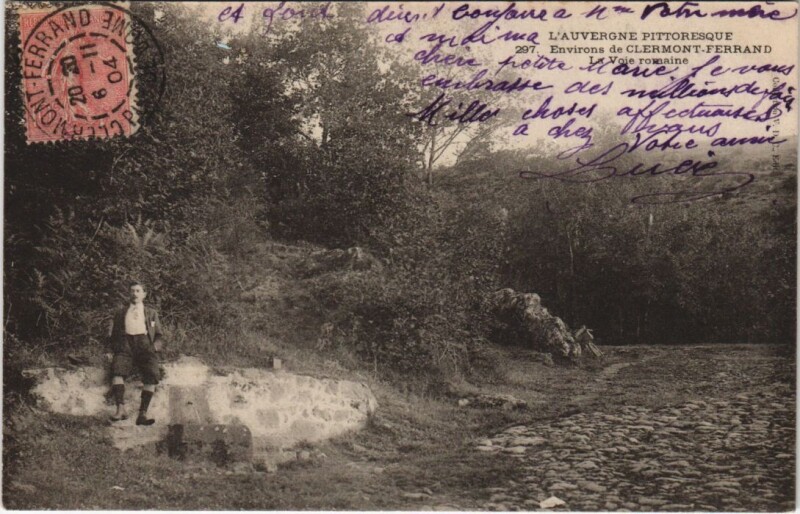 L'AUVERGNE PITTORESQUE
297. Environs de CLERMONT-FERRAND
La Voie romaine
CLERMONT-FERRAND
PUY-DE-DOME
20
6 04
et
à Mme Votre mère
et
chère petite Marie, je vous
embrasse des millions de fois
Mille choses affectueuses
à chez vous
Votre amie
Lucie